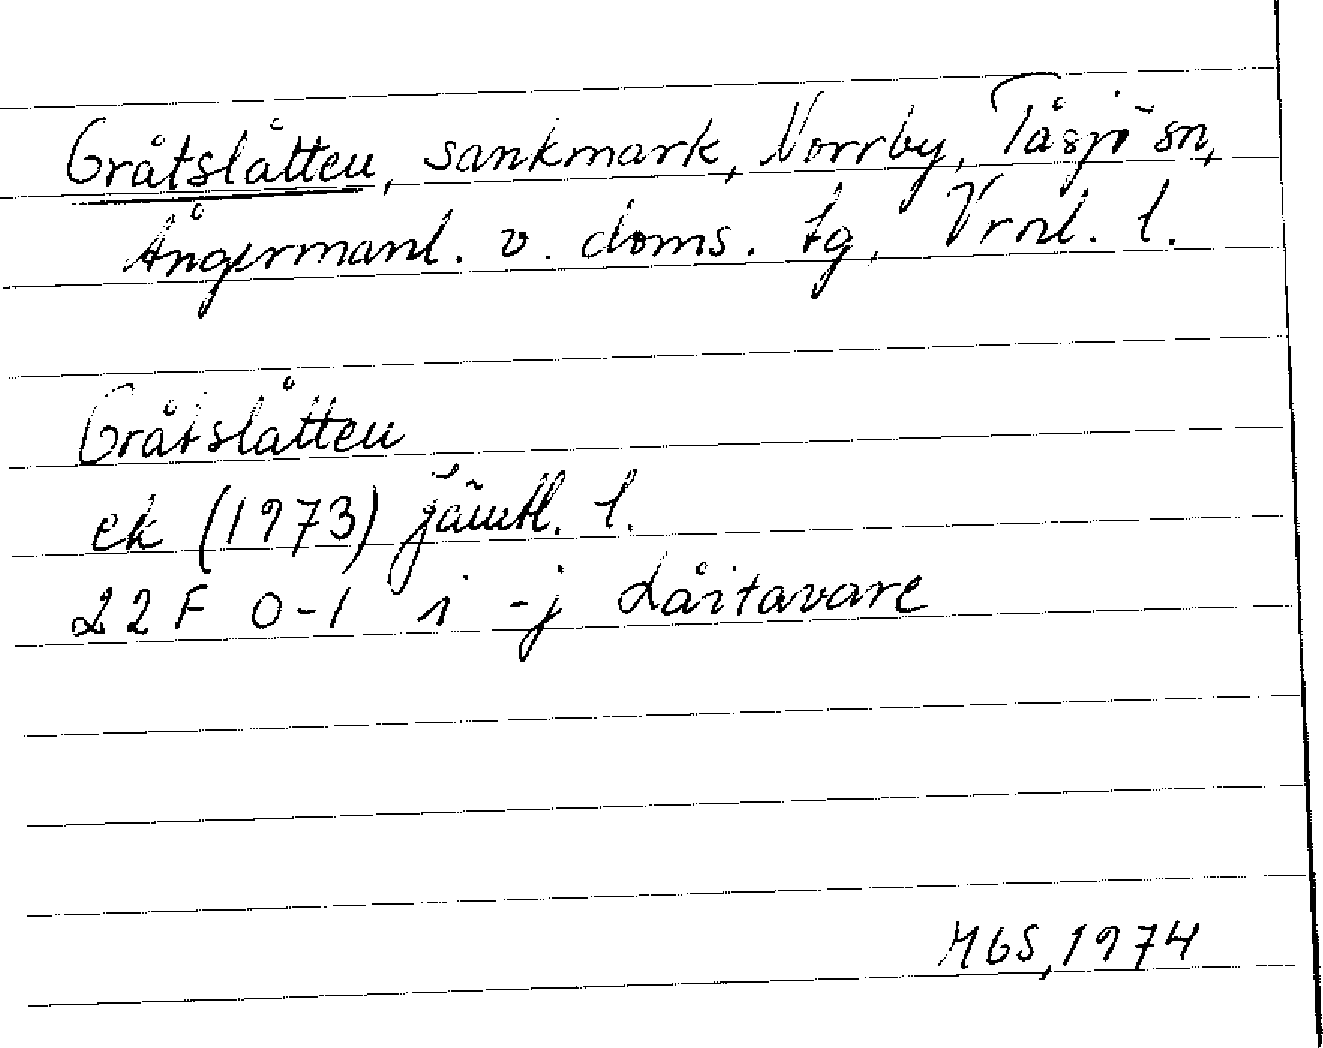 Gråtslåtten, sankmark, Norrby, Tåsjö sn,
Ångermanl. v. doms. tg, Vrnl. l.
Gråtslåtten
ek (1973) Jämtl. l.
22 F 0-1 i - j Låitavare
MGS, 1974